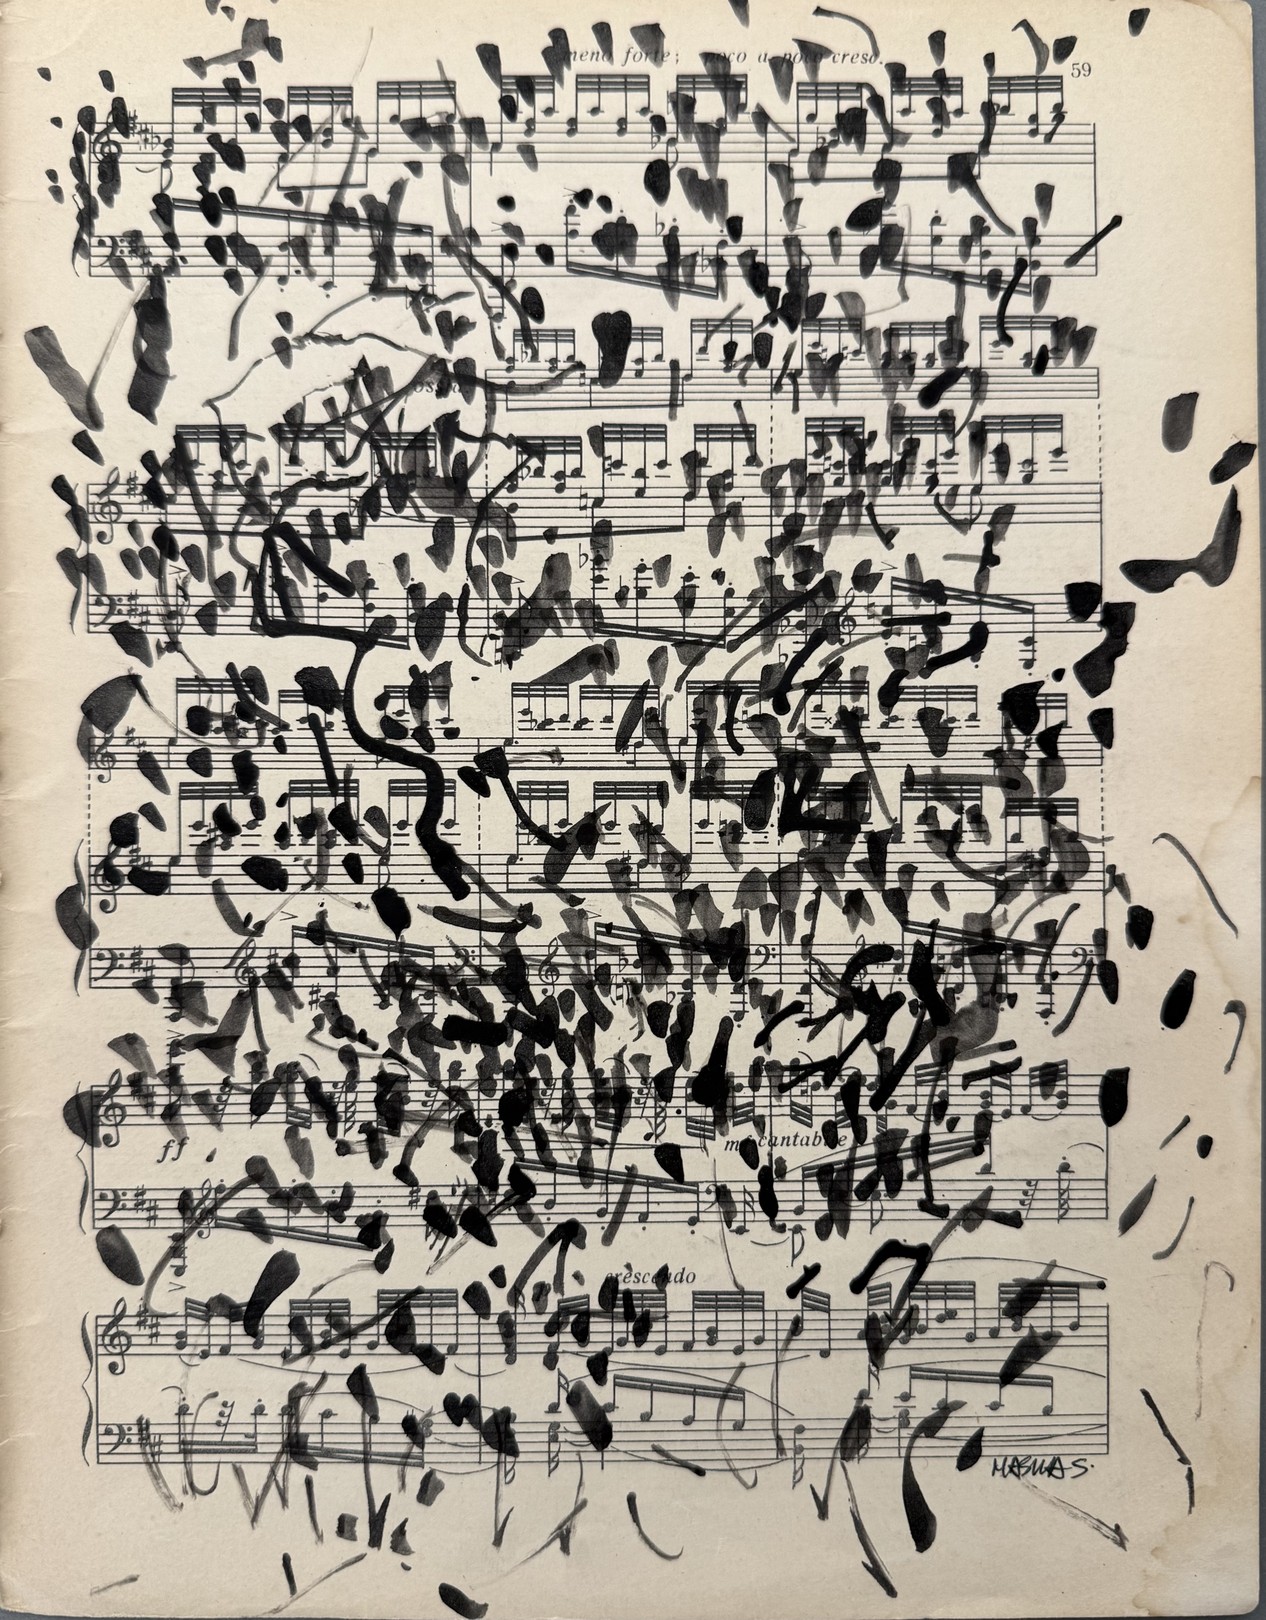 meno forte; poco a poco cresc.
59
ossia
ff
mf cantabile
crescendo
MASHA S.